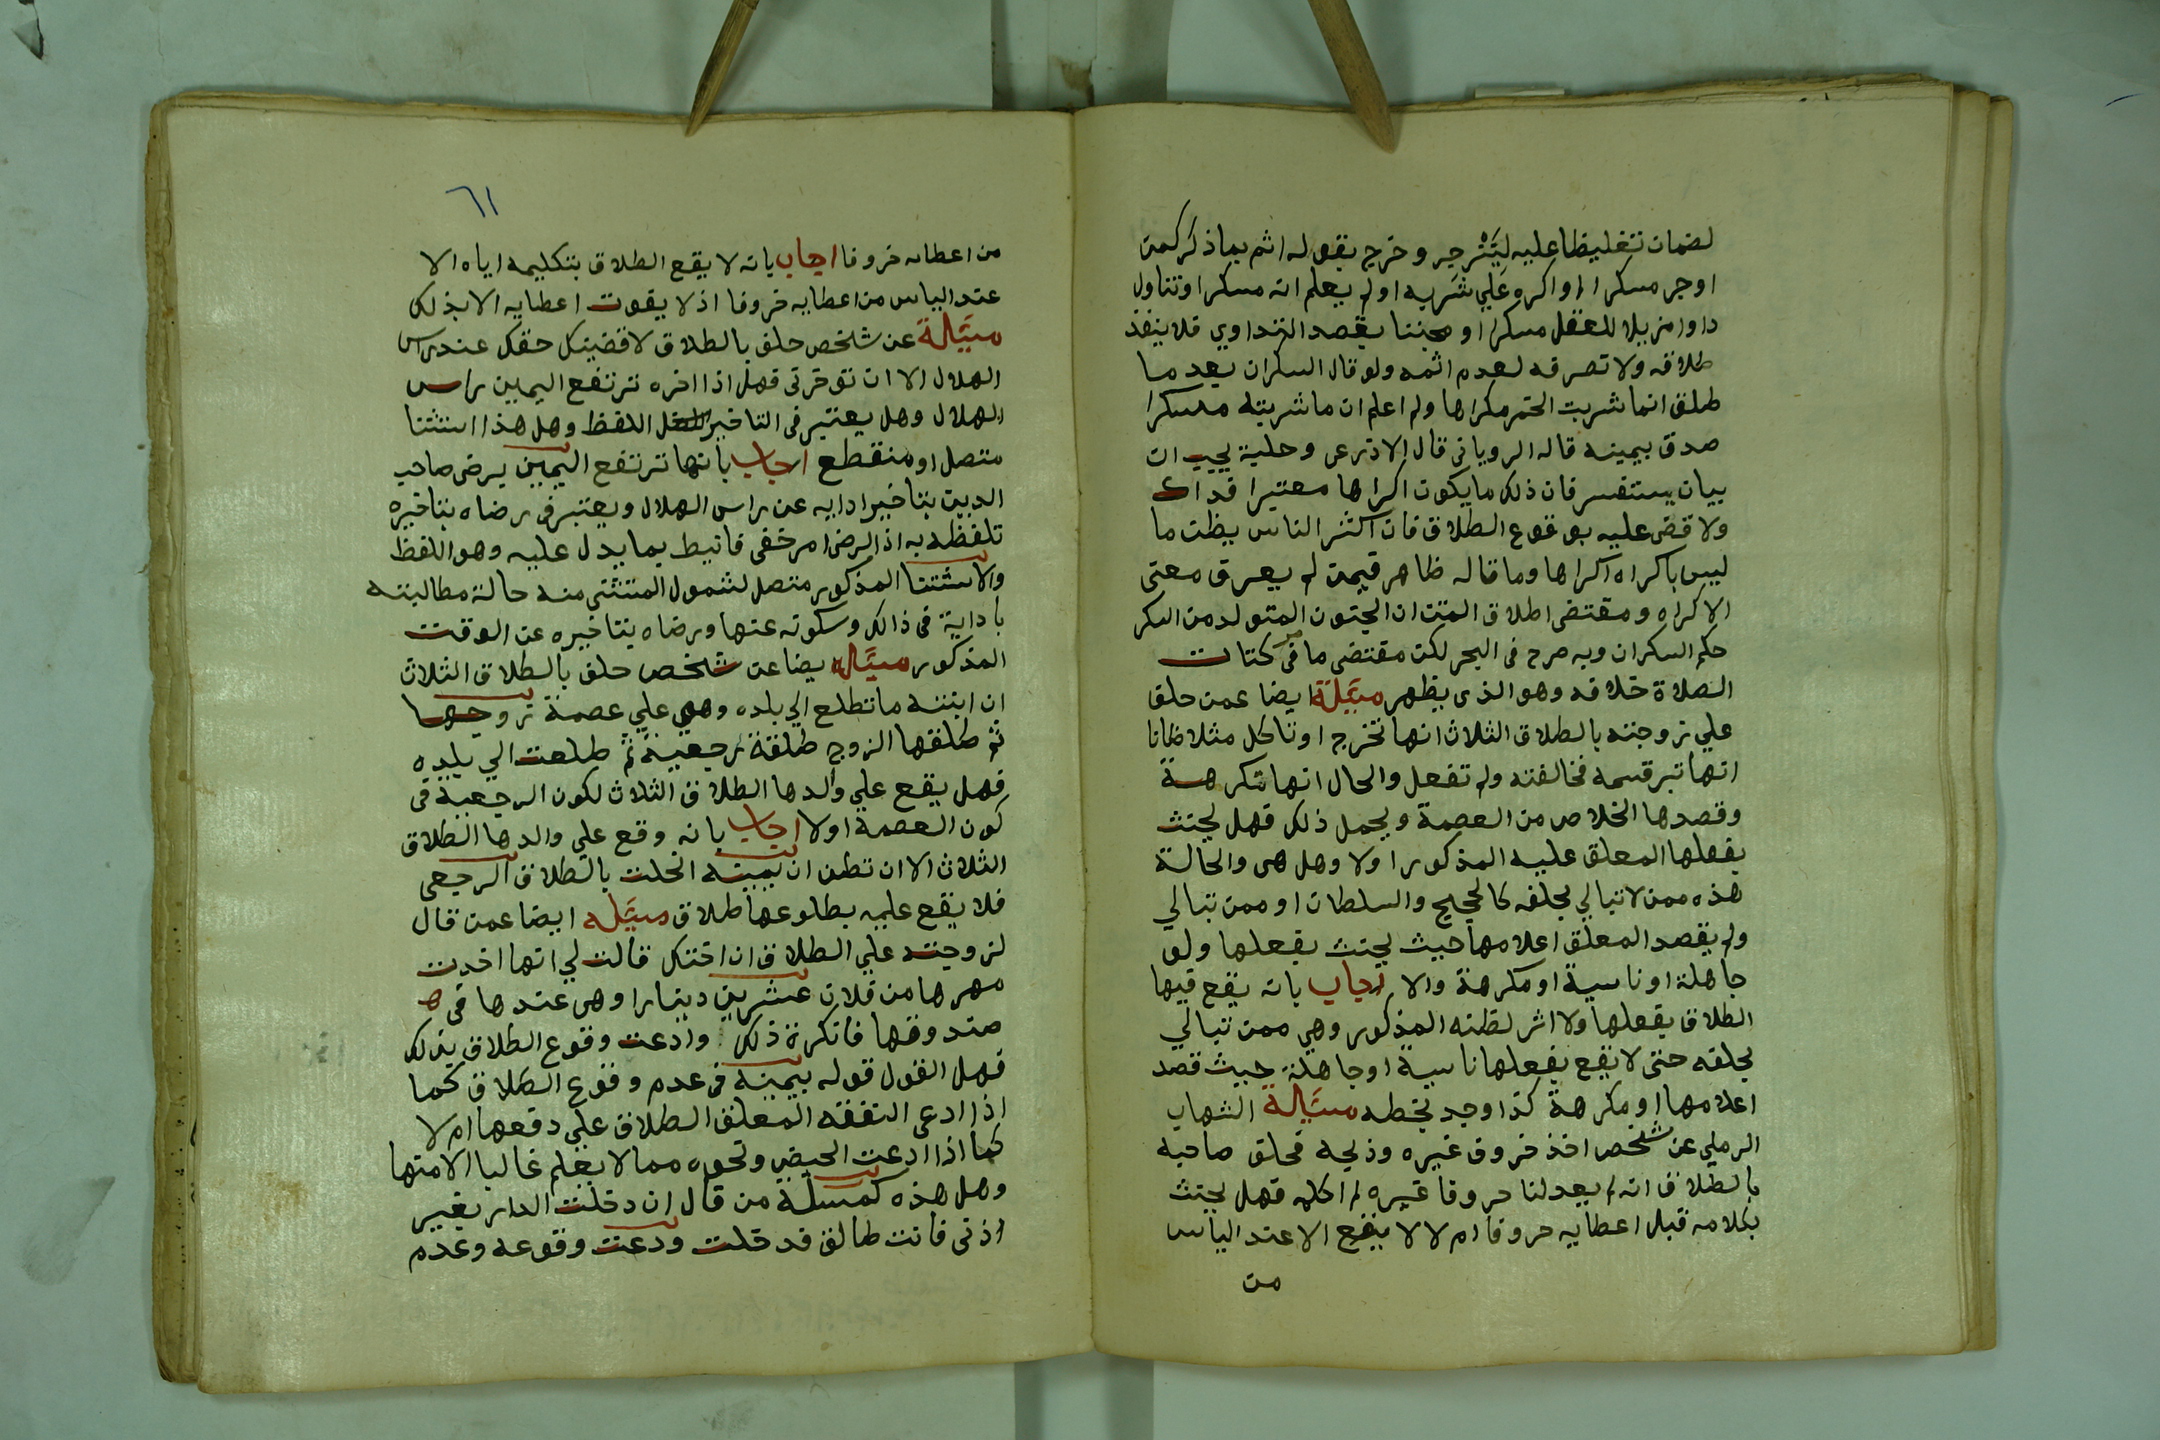 لضمان تغليظا عليه لينزجر وخرج بقوله اثم بما ذكر كمن
اوجر مسكرا او اكره علي شربه او لم يعلم انه مسكر او تناول
دواء مزيلا للعقل مسكرا او مجننا بقصد التداوي فلا ينفذ
طلاقه ولا تصرفه لعدم اثمه ولو قال السكران بعد ما
طلق انما شربت الخمر مكرها ولم اعلم ان ما شربته مسكرا
صدق بيمينه قاله الروياني قال الاذرعي وحلية يجيب ان
بيان يستفسر فان ذلك ما يكون اكراها معتبرا فداك
ولا قضي عليه بوقوع الطلاق فان اكثر الناس يظن ما
ليس باكراه اكراها وما قاله ظاهر فيمن لم يعرف معنى
الاكراه ومقتضى اطلاق المتن ان الجنون المتولد من السكر
حكم السكران وبه صرح في البحر لكن مقتضى ما مر في كتاب
الصلاة خلافه وهو الذي يظهر مسئلة ايضا عمن حلف
علي زوجته بالطلاق الثلاث انها تخرج او تاكل مثلا ظانا
انها تبر قسمه فخالفته ولم تفعل والحال انها تكرهه
وقصدها الخلاص من العصمة ويحمل ذلك فهل يحنث
بفعلها المعلق عليه المذكور او لا وهل هي والحالة
هذه ممن لا تبالي بحلفه كالحجيج والسلطان او ممن تبالي
ولم يقصد المعلق اعلامها حيث يحنث بفعلها ولو
جاهلة او ناسية او مكرهة والا اجاب بانه يقع فيها
الطلاق بفعلها ولا اثر لظنه المذكور وهي ممن تبالي
بحلفه حتى لا يقع بفعلها ناسية او جاهلة حيث قصد
اعلامها او مكرهة كذا وجد بخطه مسئلة الشهاب
الرملي عن شخص اخذ خروف غيره وذبحه فحلف صاحبه
بالطلاق انه لم يعد لنا خروفا غيره لم اكلمه فهل يحنث
بكلامه قبل اعطايه خروفا ام لا لا يقع الا عند الياس
من
٦١
من اعطائه خروفا اجاب بانه لا يقع الطلاق بتكليمه اياه الا
عند الياس من اعطايه خروفا اذ لا يفوت اعطايه الا بذلك
مسئالة عن شخص حلف بالطلاق لاقضينك حقك عند راس
الهلال الا ان توخرني فهل اذا اخره ترتفع اليمين براس
الهلال وهل يعتبر في التاخير اللفظ وهل هذا استثنا
متصل او منقطع اجاب بانها ترتفع اليمين برضى صاحب
الدين بتاخير ادايه عن راس الهلال ويعتبر في رضاه بتاخيره
تلفظه به اذ الرضى امر خفي فانيط بما يدل عليه وهو اللفظ
والاستثنا المذكور متصل لشمول المستثنى منه حالة مطالبته
بادايه في ذالك وسكوته عنها ورضاه بتاخيره عن الوقت
المذكور مسئاله ايضا عن شخص حلف بالطلاق الثلاث
ان ابنته ما تطلع الي بلده وهي علي عصمة زوجها
ثم طلقها الزوج طلقة رجعية ثم طلعت الي بلده
فهل يقع علي والدها الطلاق الثلاث لكون الرجعية في
كون العصمة او لا اجاب بانه وقع علي والدها الطلاق
الثلاث الا ان تظن ان يمينه انحلت بالطلاق الرجعي
فلا يقع عليه بطلوعها طلاق مسئله ايضا عمن قال
لزوجته علي الطلاق ان اختك قالت لي انها اخدت
مهرها من فلان عشرين دينارا وهي عندها في
صندوقها فانكرة ذلك وادعت وقوع الطلاق بذلك
فهل القول قوله بيمينه في عدم وقوع الطلاق كما
اذا ادعى النفقه المعلق الطلاق علي دفعها ام لا
كما اذا ادعت الحيض ونحوه مما لا يعلم غالبا الا منها
وهل هذه كمسئلة من قال ان دخلت الدار بغير
اذني فانت طالق فدخلت ودعت وقوعه وعدم